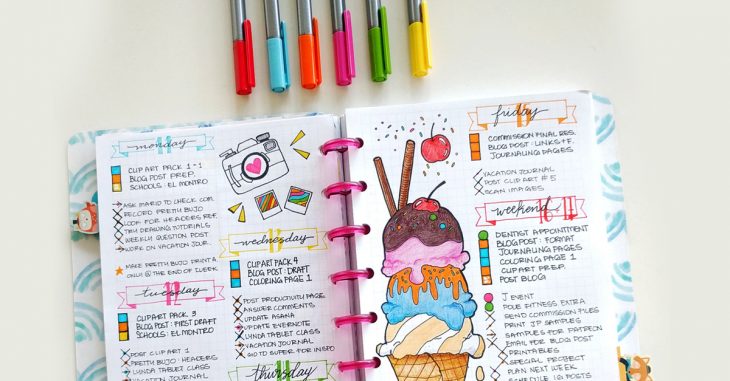 monday
CLIP ART PACK 1-1
BLOG POST PREP.
SCHOOLS: EL MONTRO
ASK MARIO TO CHECK COM.
RECORD PRETTY BUJO
LOOK FOR HEADERS REF.
TRY DRAWING TUTORIALS
WEEKLY QUESTION POST
WORK ON VACATION JOUR.
MAKE PRETTY BUJO PRINTA
ONLY @ THE END OF
tuesday
12
CLIPART PACK 3
BLOG POST: FIRST DRAFT
SCHOOLS: EL MONTRO
POST CLIPART 1
PRETTY BUJO: HEADERS
LYNDA TABLET CLASS
VACATION JOURNAL
wednesday
13
CLIPART PACK 4
BLOG POST: DRAFT
COLORING PAGE 1
POST PRODUCTIVITY PAGE
ANSWER COMMENTS
UPDATE ASANA
UPDATE EVERNOTE
LYNDA TABLET CLASS
VACATION JOURNAL
GIO TO SUPER FOR INSPO
thursday
friday
15
COMMISSION FINAL RES.
BLOG POST: LINKS + F.
JOURNALING PAGES
VACATION JOURNAL
POST CLIP ART #5
SCAN IMAGES
weekend
DENTIST APPOINTMENT
BLOG POST: FORMAT
JOURNALING PAGES
COLORING PAGE 1
CLIP ART PREP.
POST BLOG!
J EVENT
POLE FITNESS EXTRA
SEND COMMISSION FILES
PRINT JP SAMPLES
SAMPLES FOR PATREON
EMAIL FOR BLOG POST
PRINTABLES
SPECIAL PROJECT
PLAN NEXT WEEK
SCHEDULE IG POSTS